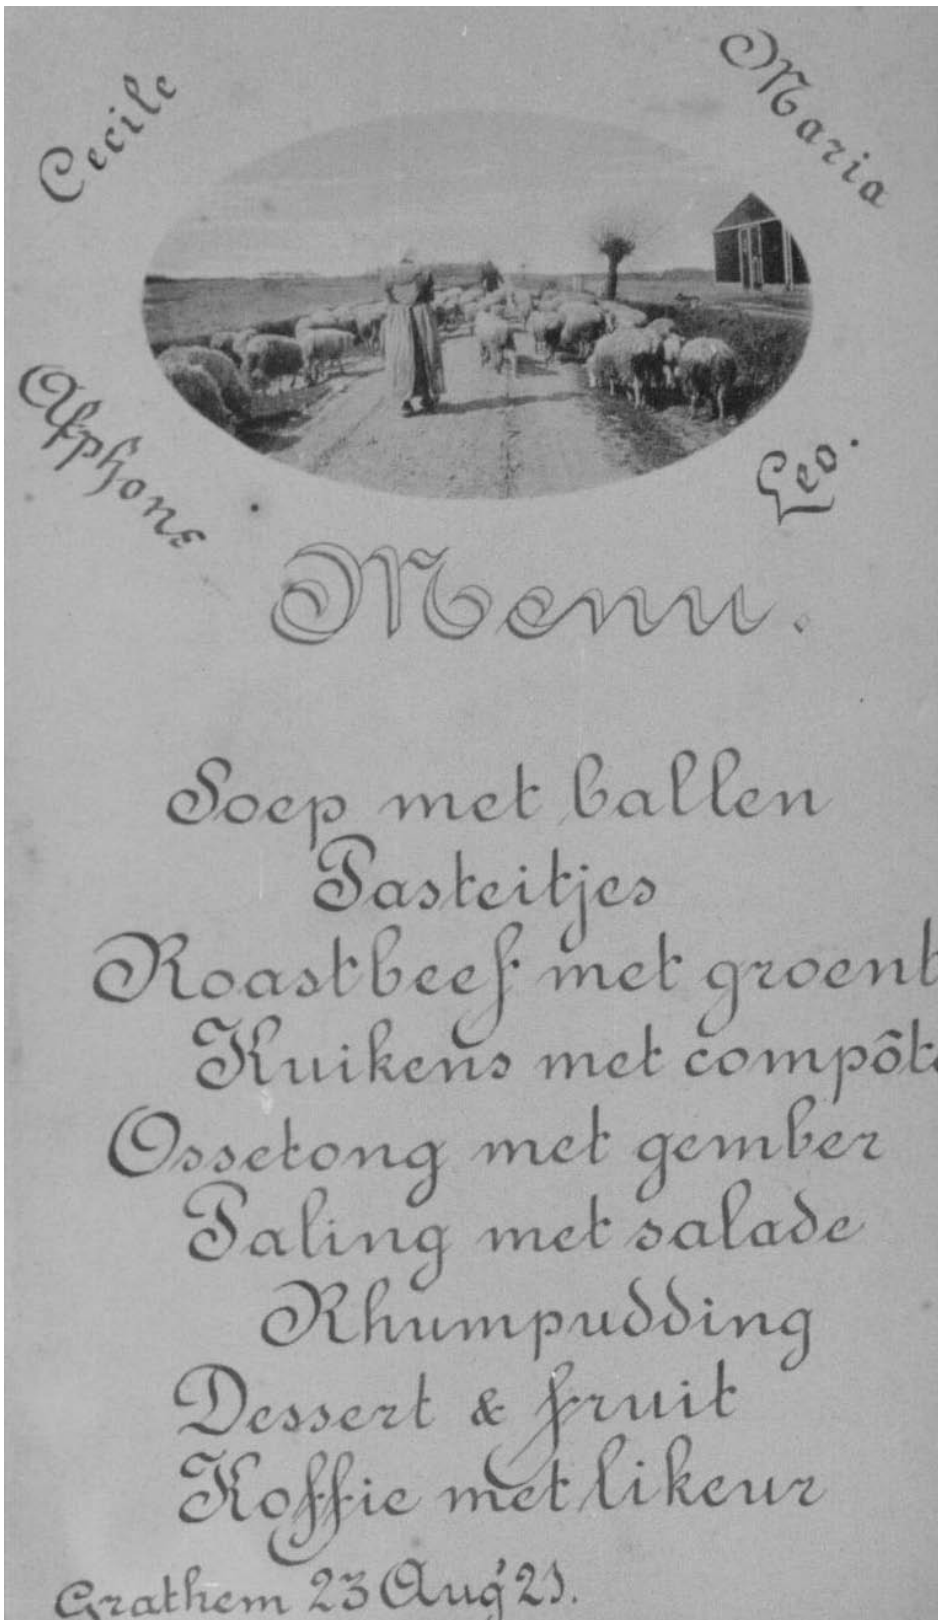 Cecile
Maria
Alphons
Leo.
Menu.
Soep met ballen
Pasteitjes
Roastbeef met groent
Kuikens met compôte
Ossetong met gember
Paling met salade
Rhumpudding
Dessert & fruit
Koffie met likeur
Grathem 23 Aug '21.